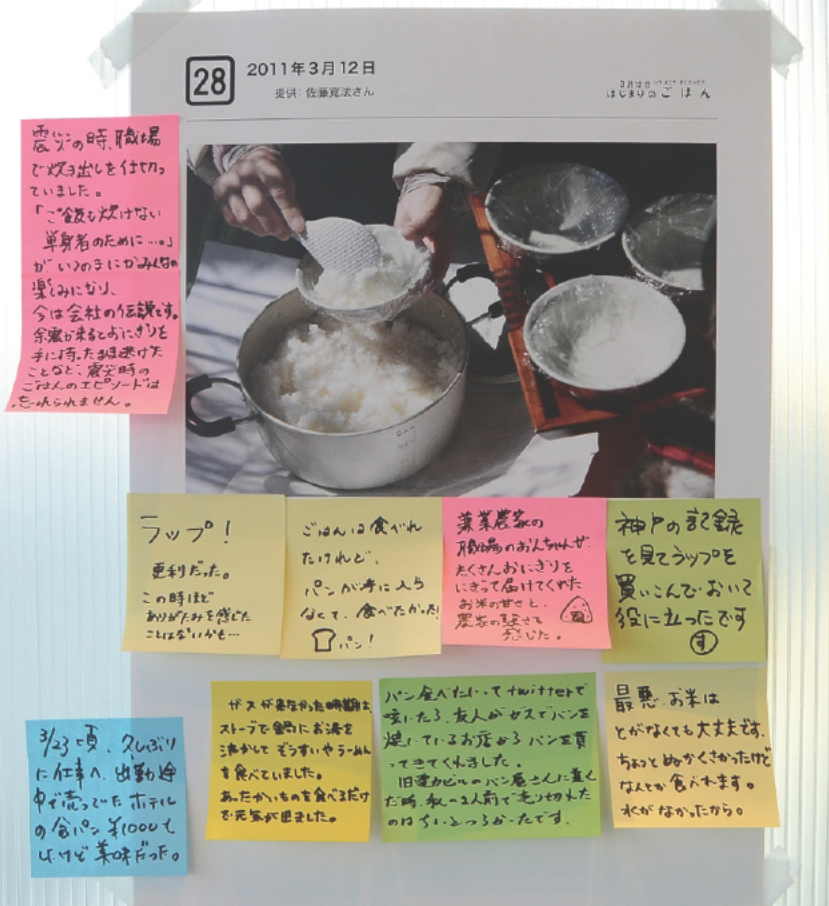 28
2011年3月12日
提供: 佐藤寛法さん
3月12日
はじまりのごはん
震災の時、職場
で炊き出しを仕切っ
ていました。
「ご飯も炊けない
単身者のために…。」
がいつのまにかみんなの
楽しみになり、
今は会社の伝説です。
余震が来るとおにぎりを
手に持ったまま逃げた
ことなど、震災時の
ごはんのエピソードは
忘れられません。
ラップ!
便利だった。
この時ほど
ありがたみを感じた
ことはないかも…
ごはんは食べれ
たけれど、
パンが手に入ら
なくて、食べたかった!
パン!
兼業農家の
職場のおんちゃんが
たくさんおにぎりを
にぎって届けてくれた
お米の甘さと、
農家の強さを
感じた。
神戸の記録
を見てラップを
買いこんでおいて
役に立ったです
す
3/23頃、久しぶり
に仕事へ、出勤途
中で売ってたホテル
の食パン ¥1000も
したけど美味だった。
ガスが来なかった時期は、
ストーブで鍋にお湯を
沸かしてぞうすいやらーめん
を食べていました。
あったかいものを食べるだけ
で元気が出ました。
パン食べたいってtwitterで
呟いたら、友人がガスでパンを
焼いているお店からパンを買
ってきてくれました。
旧電力ビルのパン屋さんに並ん
だ時、私の2人前で売り切れた
のはちょっとつらかったです。
最悪、お米は
とがなくても大丈夫です。
ちょっとぬかくさかったけど
なんとか食べれます。
水がなかったから。